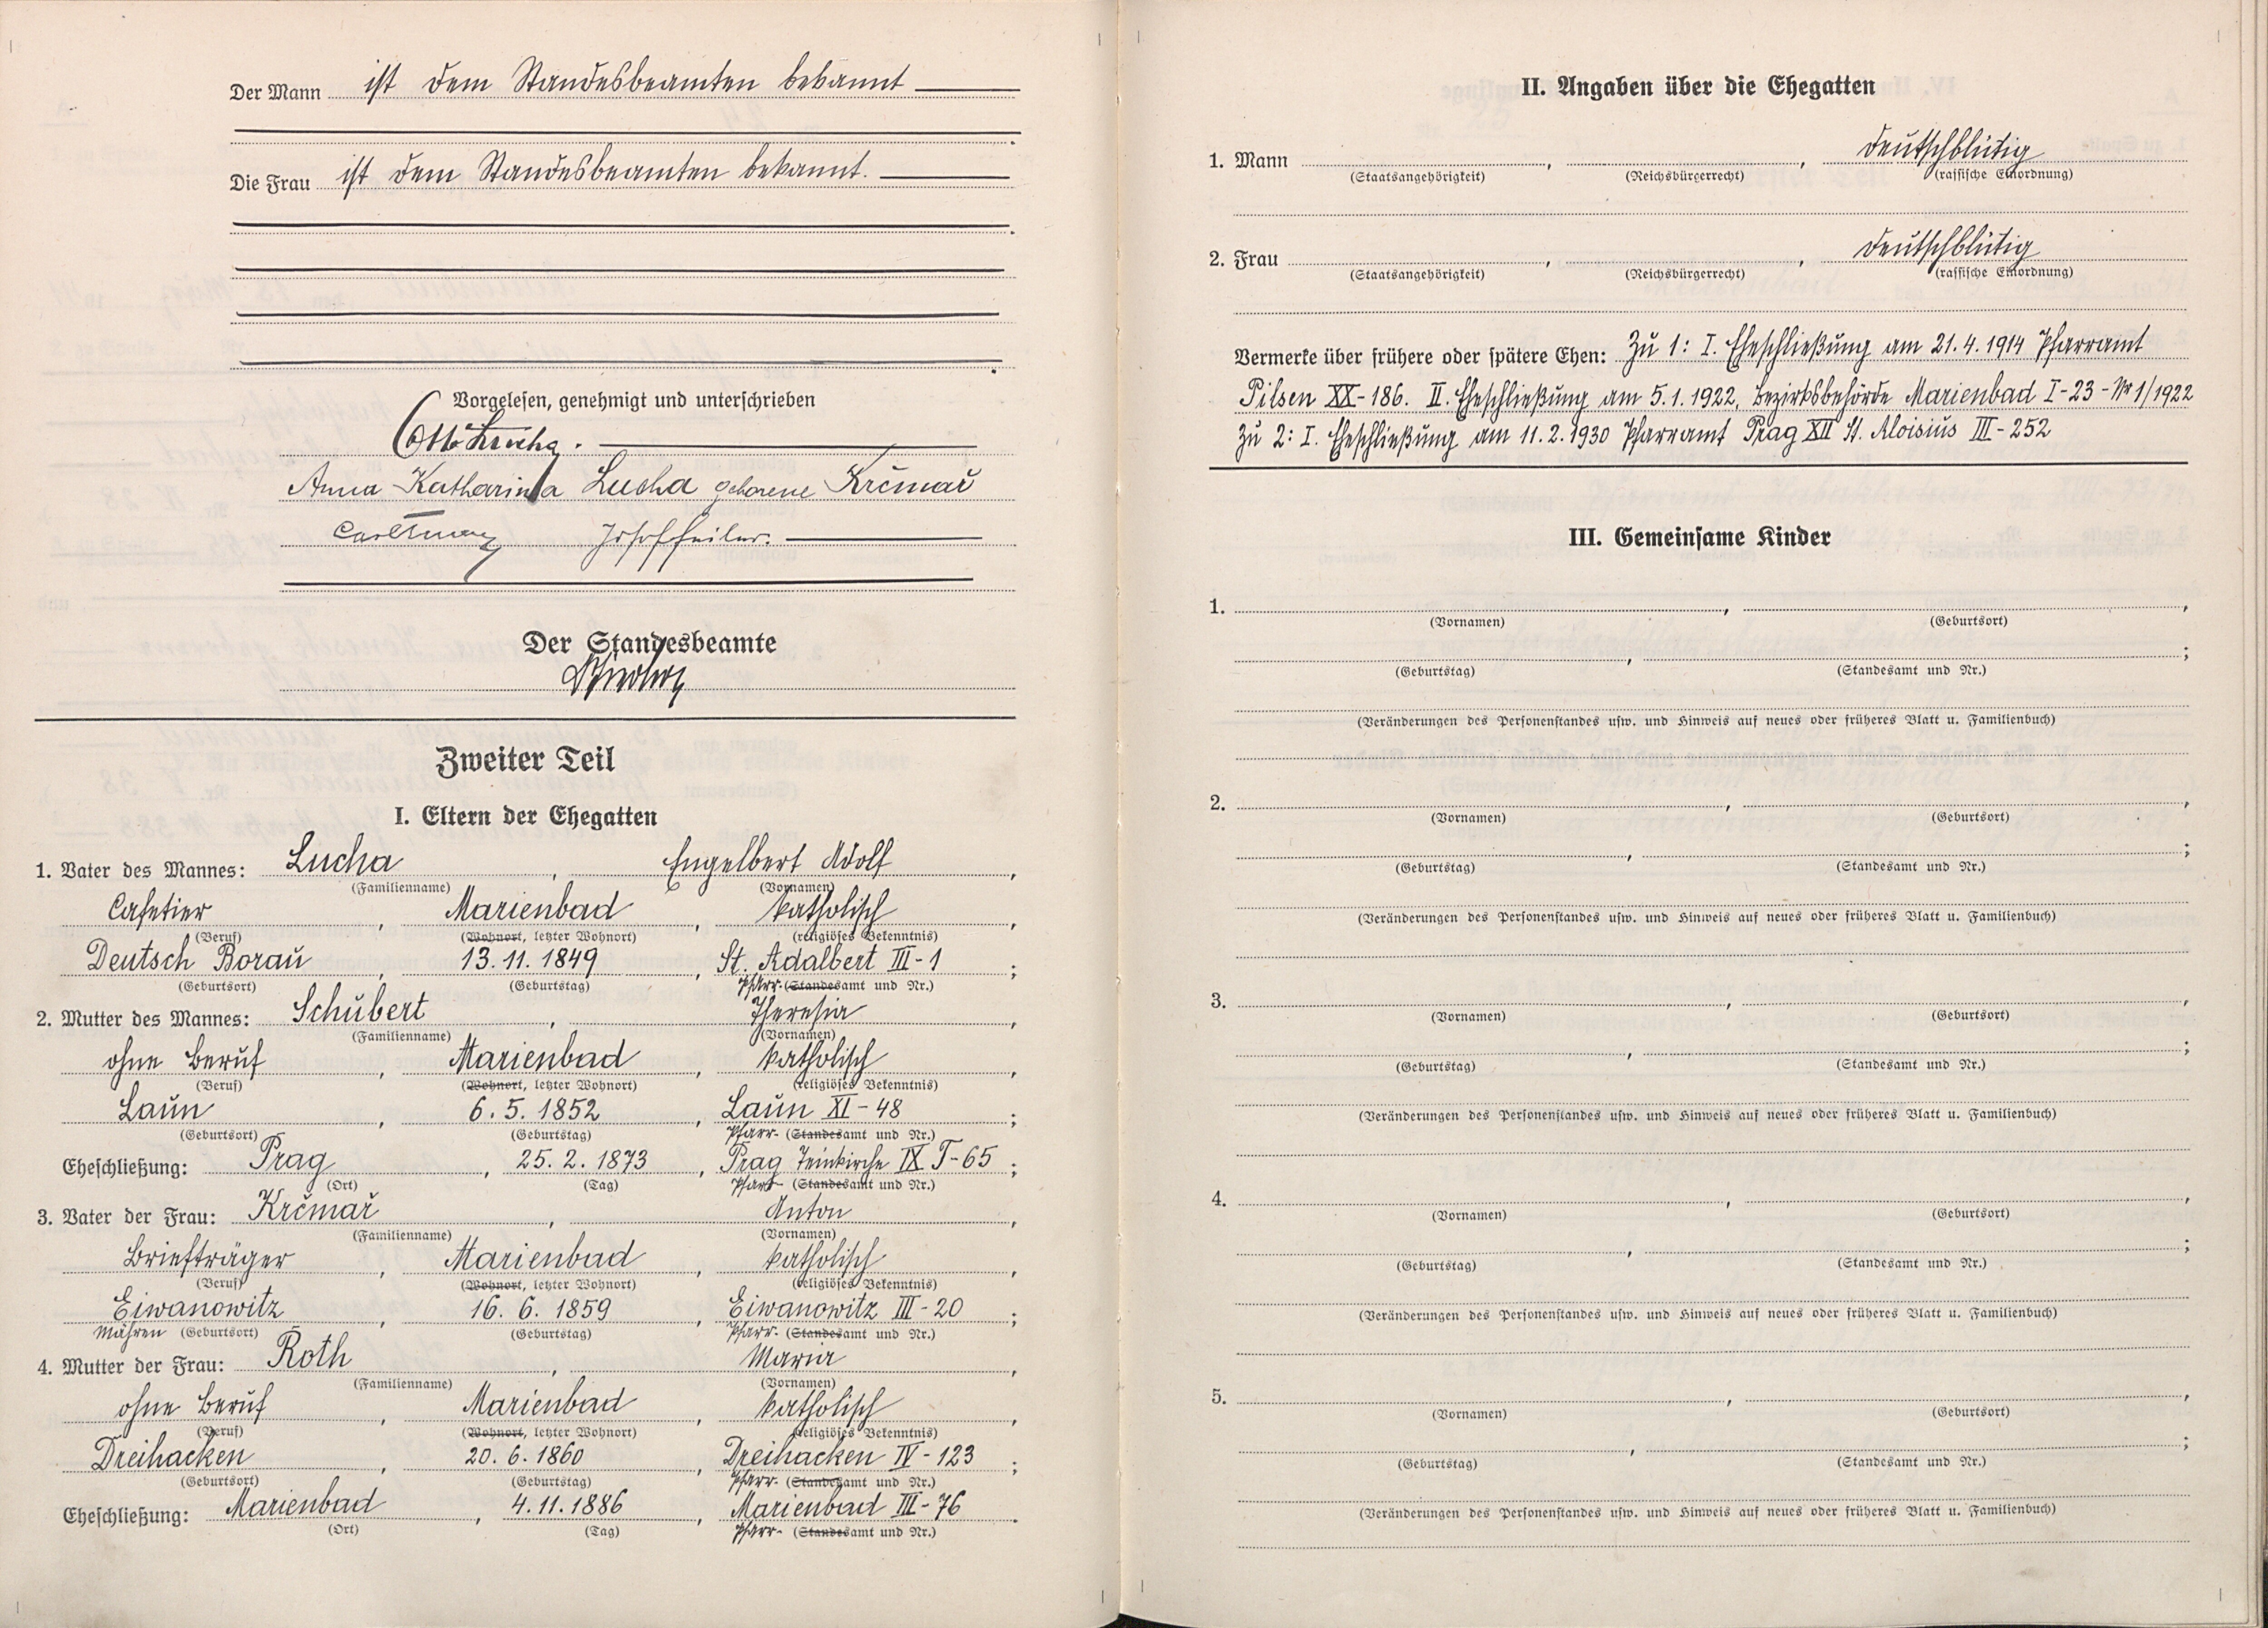 Der Mann ist dem Standesbeamten bekannt
Die Frau ist dem Standesbeamten bekannt.
Vorgelesen, genehmigt und unterschrieben
Otto Lucha.
Anna Katharina Lucha geborene Krčmař
Der Standesbeamte
Zweiter Teil
I. Eltern der Ehegatten
1. Vater des Mannes: Lucha, Engelbert Adolf,
(Familienname) (Vornamen)
Cafetier, Marienbad, katholisch,
(Beruf) (Wohnort, letzter Wohnort) (religiöses Bekenntnis)
Deutsch Borau, 13.11.1849, St. Adalbert III-1;
(Geburtsort) (Geburtstag) Pfarr- (Standesamt und Nr.)
2. Mutter des Mannes: Schubert, Theresia,
(Familienname) (Vornamen)
ohne Beruf, Marienbad, katholisch,
(Beruf) (Wohnort, letzter Wohnort) (religiöses Bekenntnis)
Laun, 6.5.1852, Laun XI-48;
(Geburtsort) (Geburtstag) Pfarr- (Standesamt und Nr.)
Eheschließung: Prag, 25.2.1873, Prag Teinkirche IX T-65;
(Ort) (Tag) Pfarr- (Standesamt und Nr.)
3. Vater der Frau: Krčmař, Anton,
(Familienname) (Vornamen)
Briefträger, Marienbad, katholisch,
(Beruf) (Wohnort, letzter Wohnort) (religiöses Bekenntnis)
Eiwanowitz, 16.6.1859, Eiwanowitz III-20;
Mähren (Geburtsort) (Geburtstag) Pfarr- (Standesamt und Nr.)
4. Mutter der Frau: Roth, Maria,
(Familienname) (Vornamen)
ohne Beruf, Marienbad, katholisch,
(Beruf) (Wohnort, letzter Wohnort) (religiöses Bekenntnis)
Dreihacken, 20.6.1860, Dreihacken IV-123;
(Geburtsort) (Geburtstag) Pfarr- (Standesamt und Nr.)
Eheschließung: Marienbad, 4.11.1886, Marienbad III-76.
(Ort) (Tag) Pfarr- (Standesamt und Nr.)
II. Angaben über die Ehegatten
1. Mann , , deutschblütig
(Staatsangehörigkeit) (Reichsbürgerrecht) (rassische Einordnung)
2. Frau , , deutschblütig
(Staatsangehörigkeit) (Reichsbürgerrecht) (rassische Einordnung)
Vermerke über frühere oder spätere Ehen: Zu 1: I. Eheschließung am 21.4.1914 Pfarramt
Pilsen XX-186. II. Eheschließung am 5.1.1922, Bezirksbehörde Marienbad I-23-Nr 1/1922
Zu 2: I. Eheschließung am 11.2.1930 Pfarramt Prag XII St. Aloisius III-252
III. Gemeinsame Kinder
1. , ,
(Vornamen) (Geburtsort)
, ;
(Geburtstag) (Standesamt und Nr.)
(Veränderungen des Personenstandes usw. und Hinweis auf neues oder früheres Blatt u. Familienbuch)
2. , ,
(Vornamen) (Geburtsort)
, ;
(Geburtstag) (Standesamt und Nr.)
(Veränderungen des Personenstandes usw. und Hinweis auf neues oder früheres Blatt u. Familienbuch)
3. , ,
(Vornamen) (Geburtsort)
, ;
(Geburtstag) (Standesamt und Nr.)
(Veränderungen des Personenstandes usw. und Hinweis auf neues oder früheres Blatt u. Familienbuch)
4. , ,
(Vornamen) (Geburtsort)
, ;
(Geburtstag) (Standesamt und Nr.)
(Veränderungen des Personenstandes usw. und Hinweis auf neues oder früheres Blatt u. Familienbuch)
5. , ,
(Vornamen) (Geburtsort)
, ;
(Geburtstag) (Standesamt und Nr.)
(Veränderungen des Personenstandes usw. und Hinweis auf neues oder früheres Blatt u. Familienbuch)